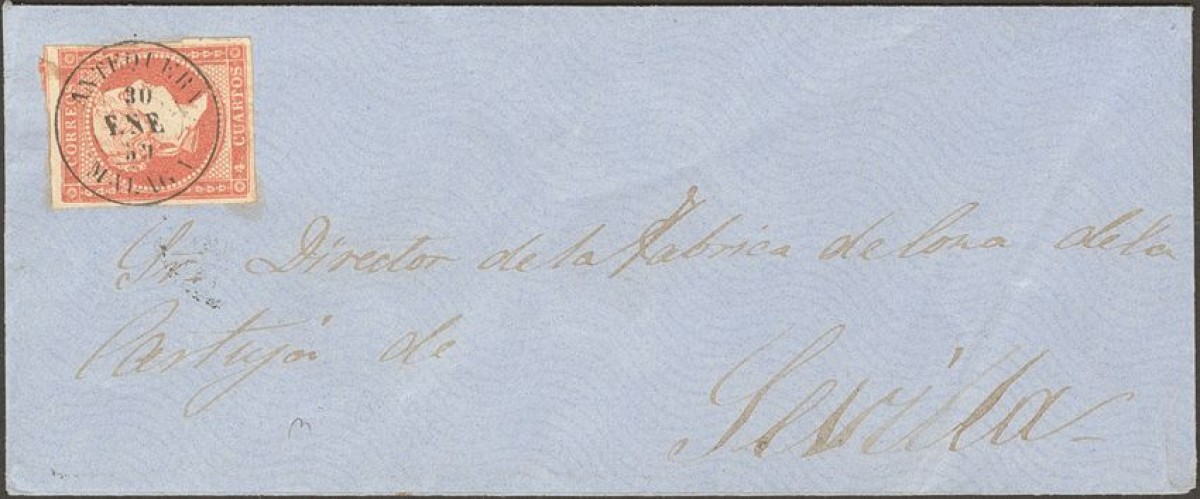 ANTEQUERA
30
ENE
59
MALAGA
CORREOS
4 CUARTOS
Sr. Director de la Fabrica de loza de la
Cartuja de
Sevilla